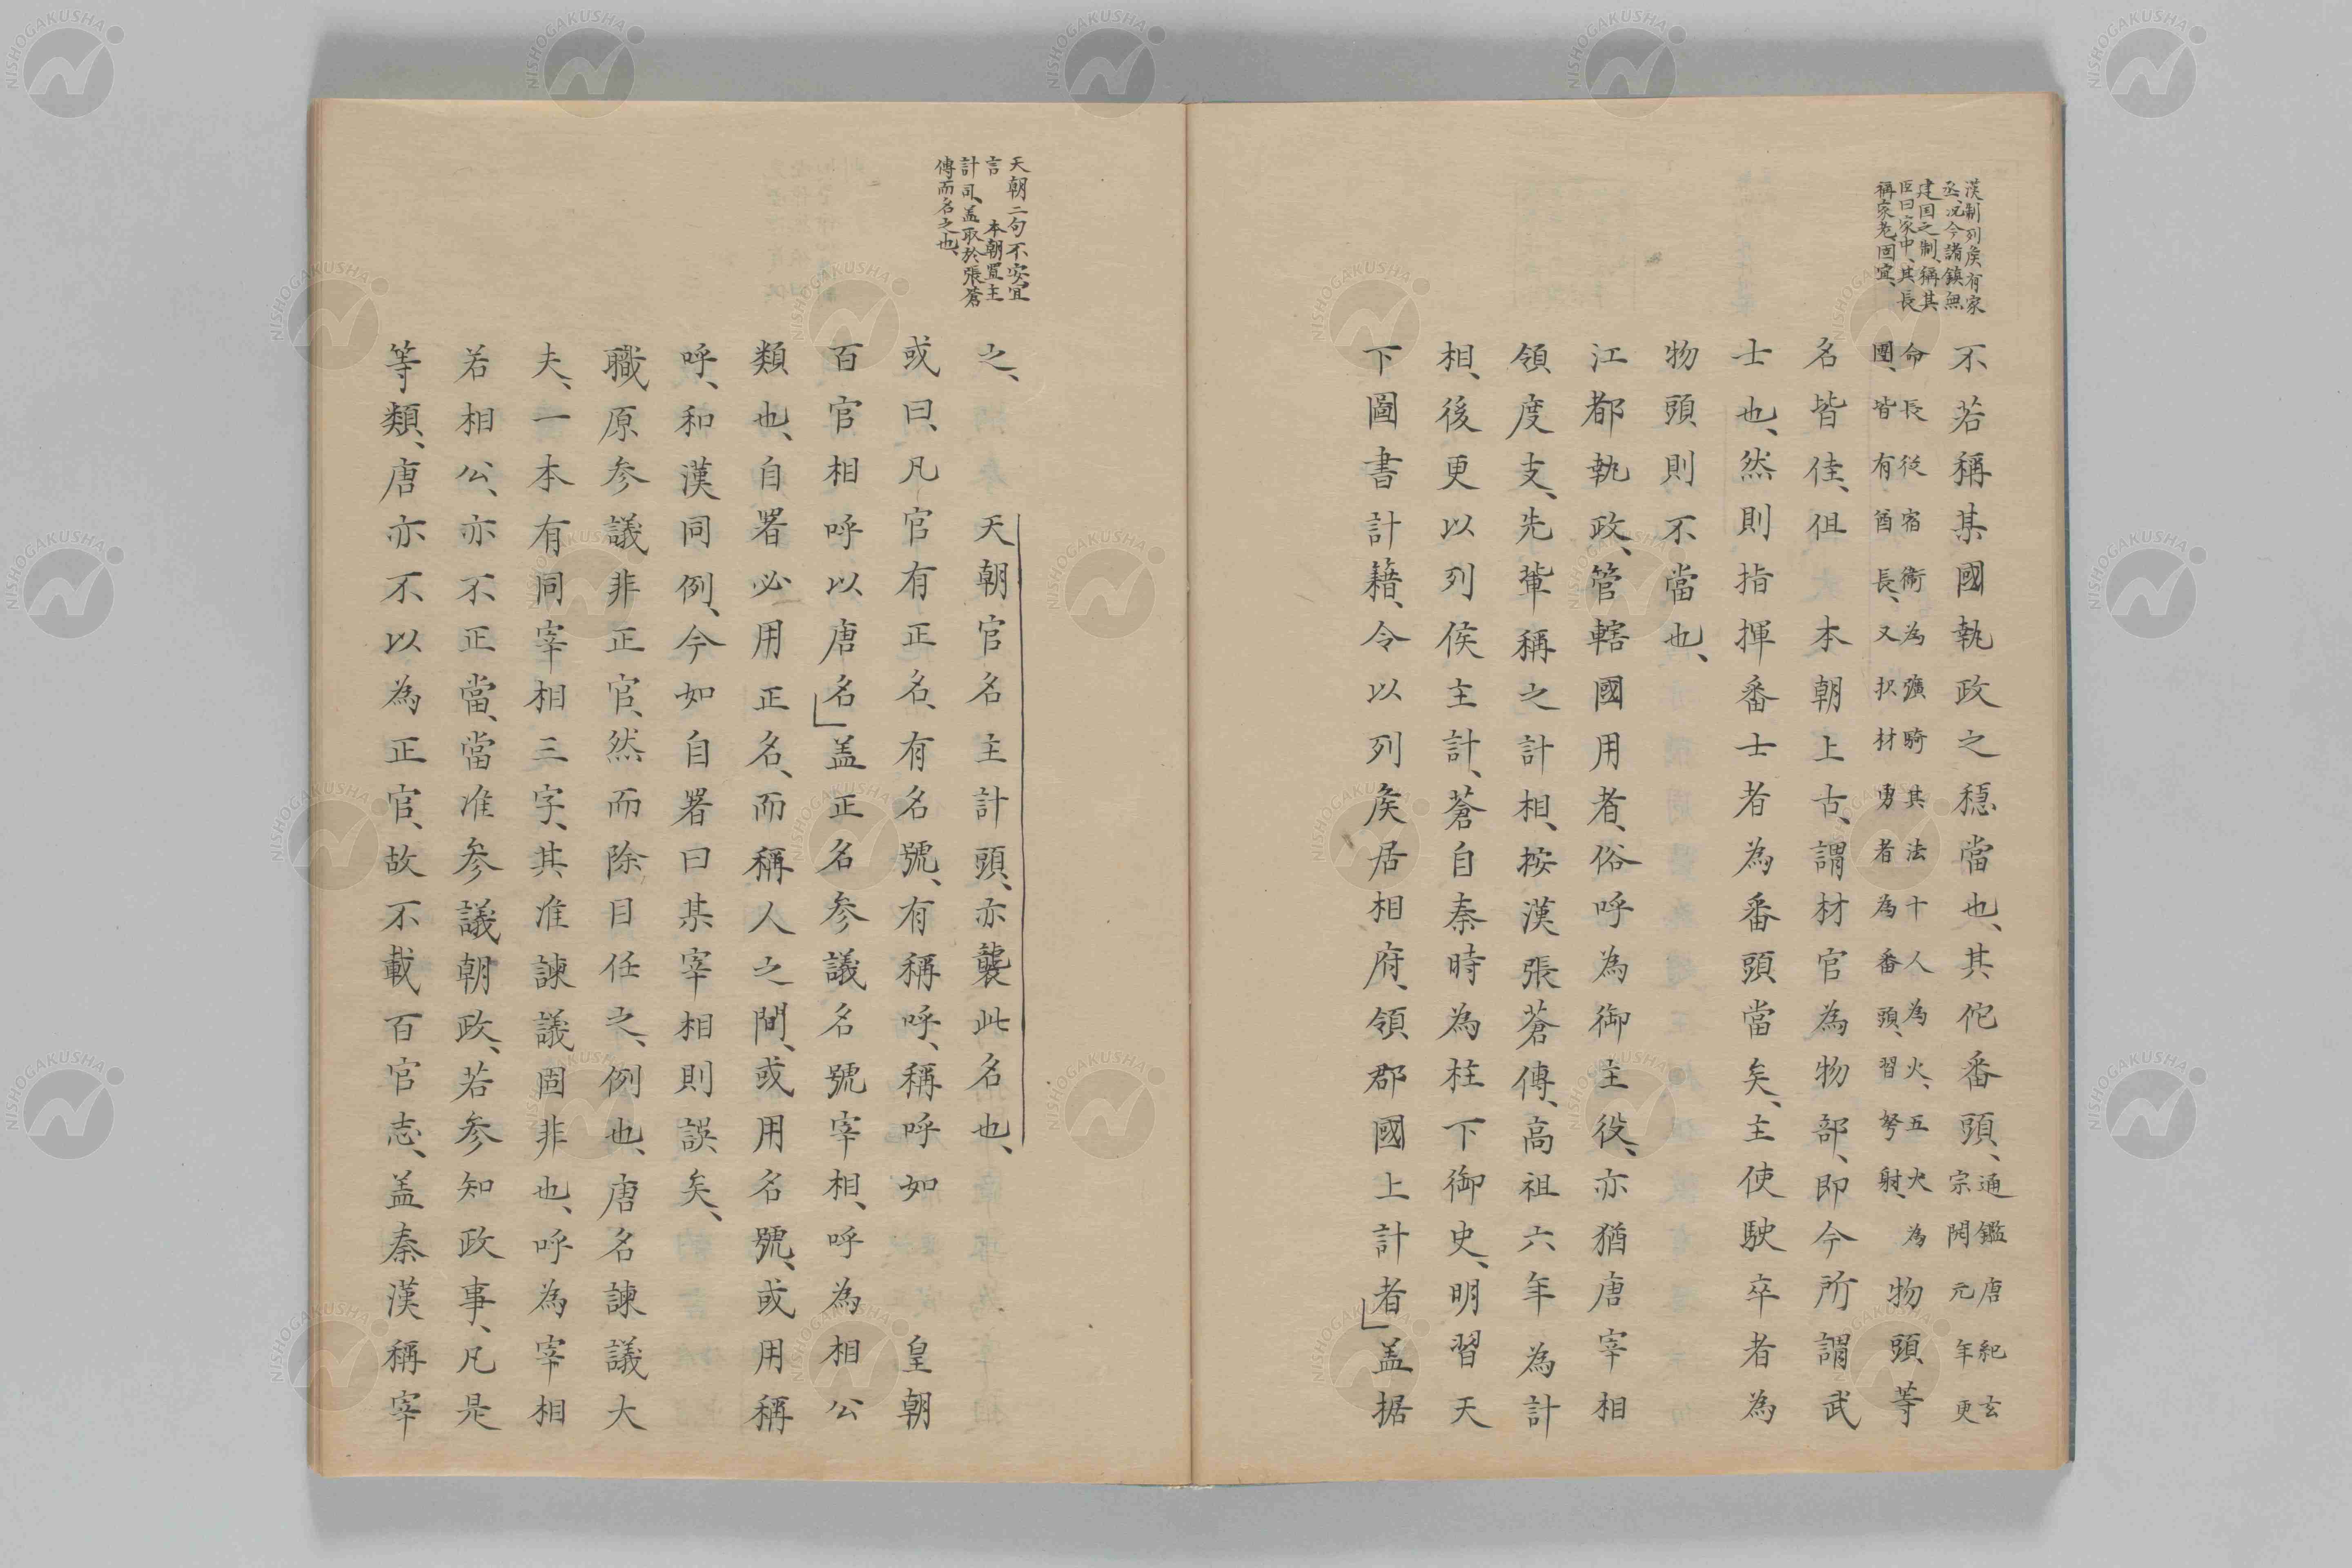 漢制列矦有家
丞、况今諸鎮無
建国之制、稱其
臣曰家中、其長
稱家老、固宜、
不若稱某國執政之穏當也、其佗番頭、通鑑唐紀玄
宗開元年更
命長從宿衛為彍騎其法十人為火、五火為
團、皆有酋長、又択材勇者為番頭、習弩射、物頭等
名皆佳、但本朝上古、謂材官為物部、即今所謂武
士也、然則指揮番士者為番頭當矣、主使駛卒者為
物頭則不當也、
江都執政、管轄國用者、俗呼為御主役、亦猶唐宰相
領度支、先輩稱之計相、按漢張蒼傳、高祖六年為計
相、後更以列侯主計、蒼自秦時為柱下御史、明習天
下圖書計籍、令以列矦居相府、領郡國上計者」盖据
天朝二句不安、宜
言　本朝置主
計司、盖取於張蒼
傳而名之也、
之、　天朝官名主計頭、亦襲此名也、
或曰、凡官有正名、有名號、有稱呼、稱呼如　皇朝
百官相呼以唐名」盖正名参議名號宰相、呼為相公
類也、自署必用正名、而稱人之間、或用名號、或用稱
呼、和漢同例、今如自署曰某宰相則誤矣、
職原参議非正官、然而除目任之、例也、唐名諫議大
夫、一本有同宰相三字、其准諫議固非也、呼為宰相
若相公、亦不正當、當准参議朝政、若参知政事、凡是
等類、唐亦不以為正官、故不載百官志、盖秦漢稱宰
NISHOGAKUSHA